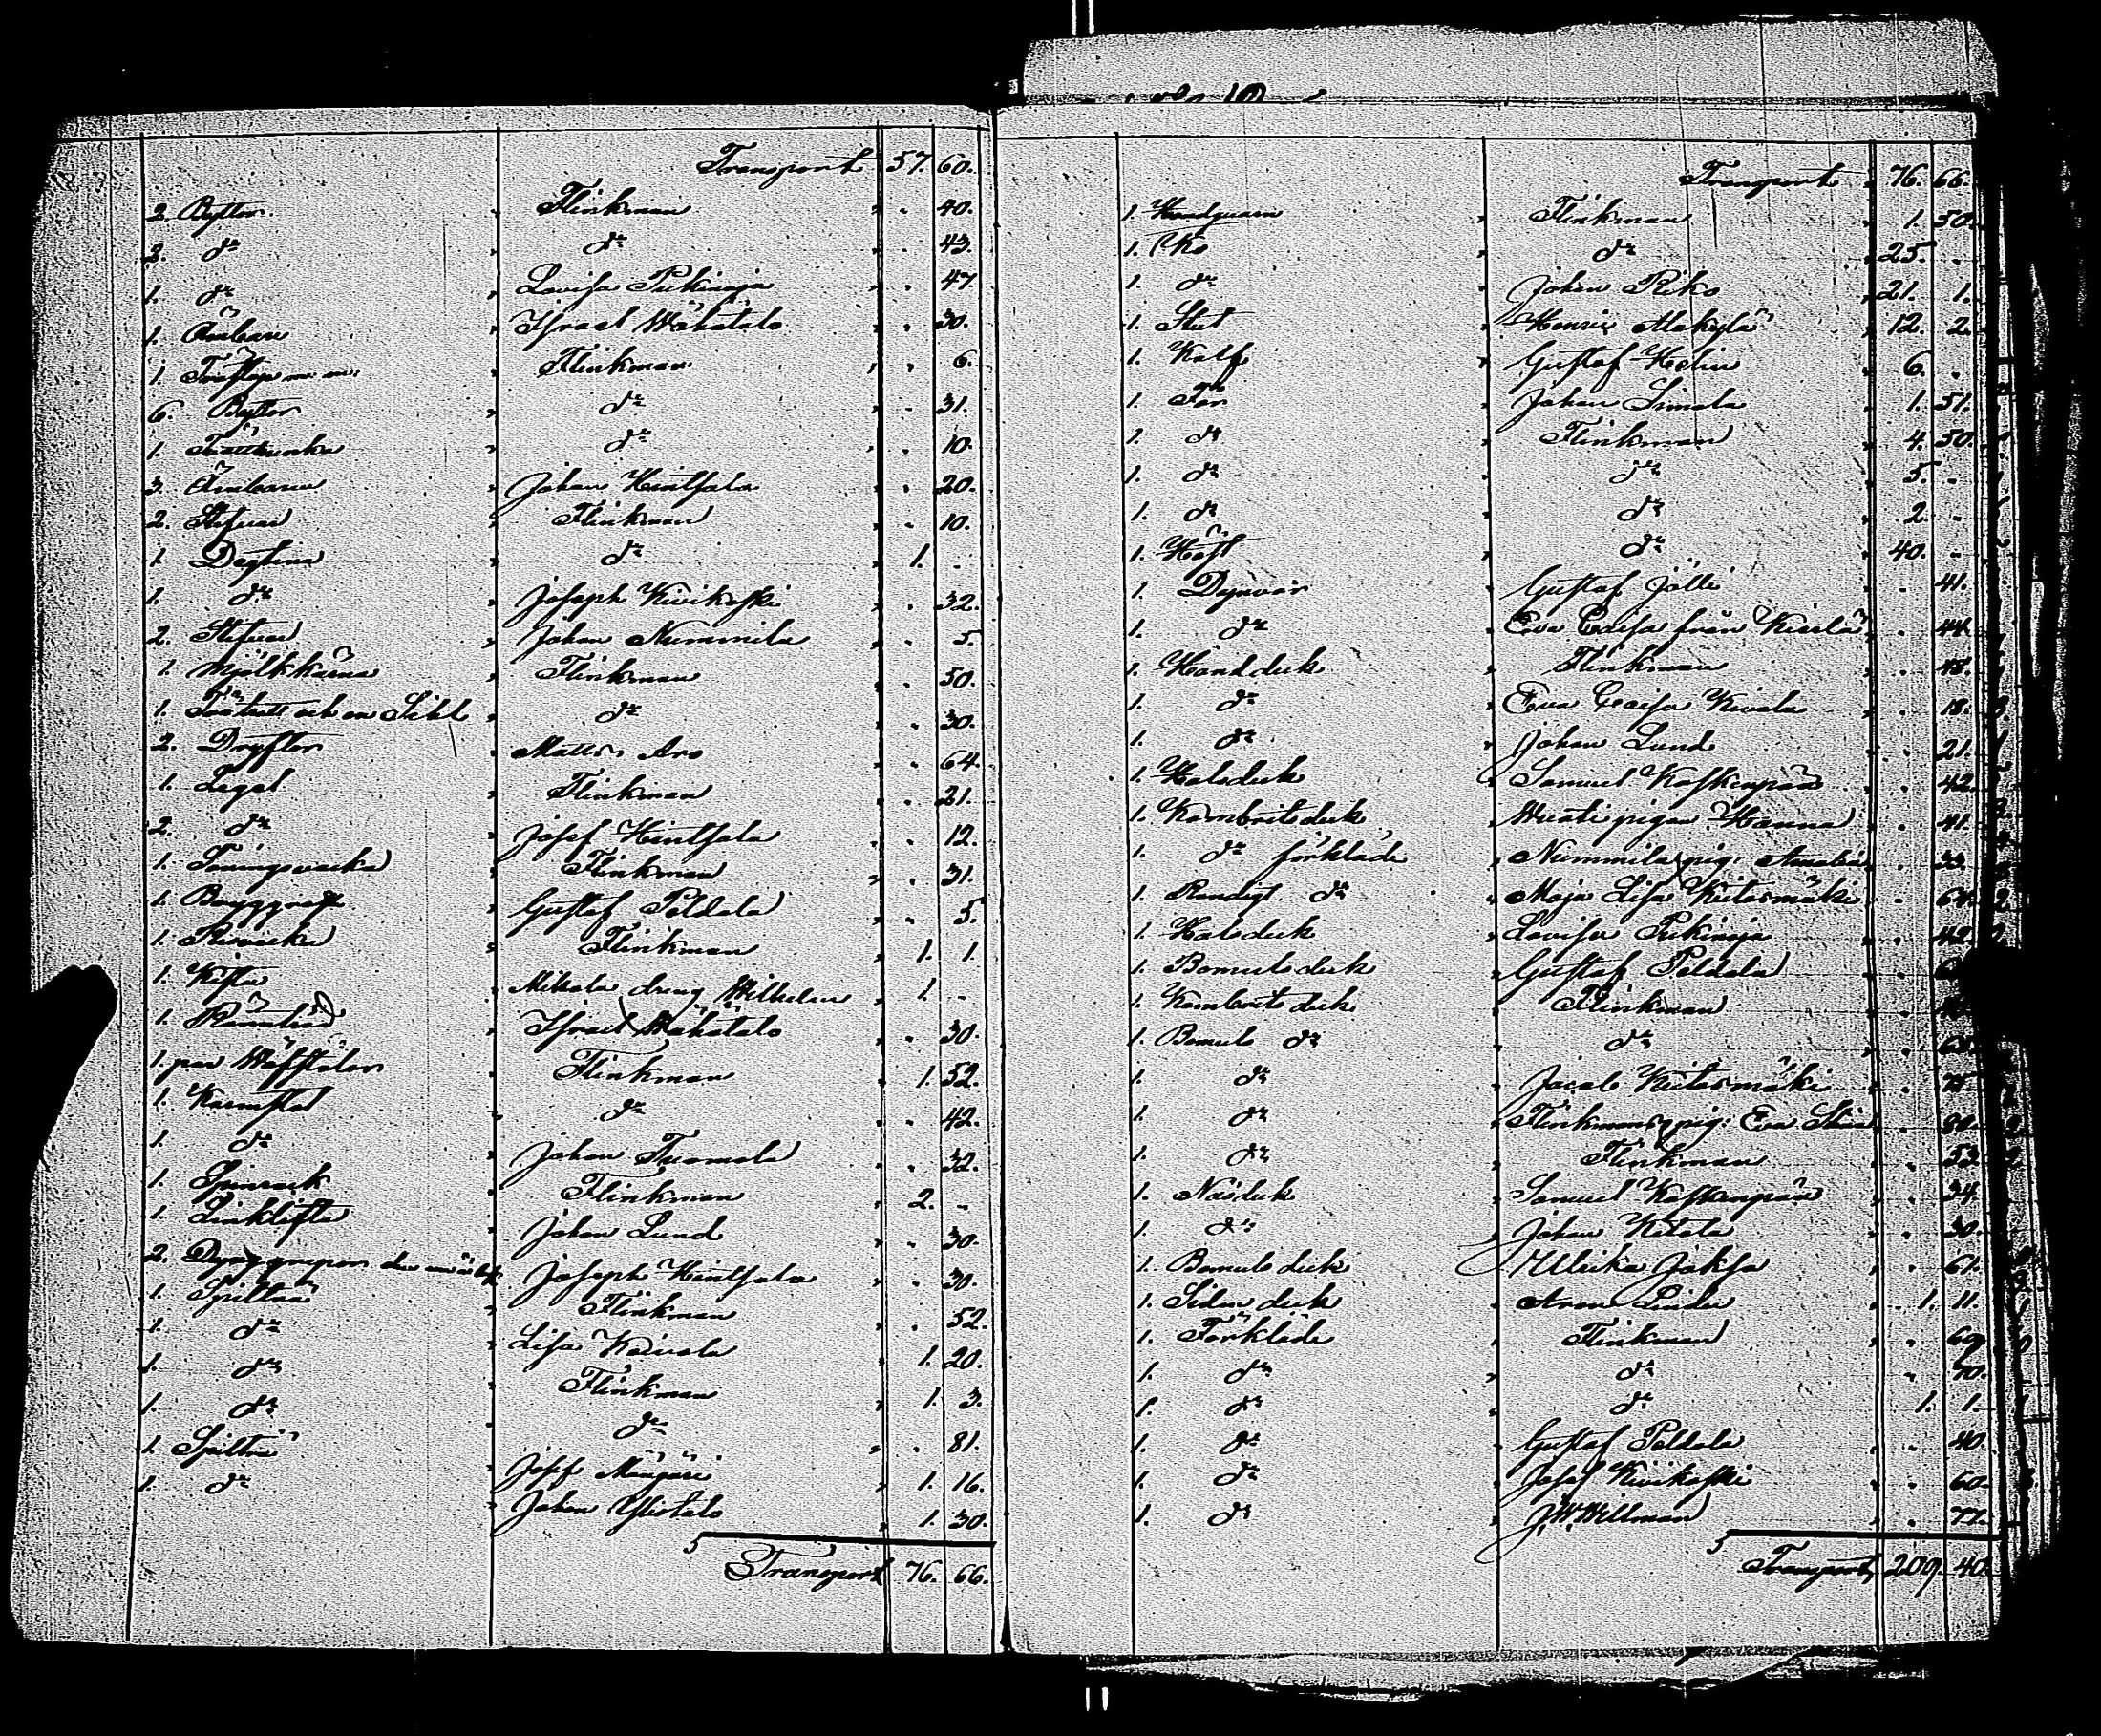 Transport 57. 60.
2. Byttor Flinkman 40.
2. do do 43.
1. do Lovisa Pukinja 47
1. Ämbare Israel Mäkitalo 30.
1. Flinkman 6.
6. Byttor do 31.
1. do 10.
3. Ämbaren Johan Hintsala 20.
2. Stefvar Flinkman 10.
1. Degtina do 1. -
1. do Joseph Kivikoski 32.
2. Stefvar Johan Nummila 5
1. Mjölkkärna Flinkman 50.
1. Trätratt och en Sikt do 30.
2. Dryftor Matts Aro 64.
1. Legel Flinkman 21.
2. do Josef Hintsala 12.
1. Flinkman 31.
1. Gustaf Peldala 5.
1. Flinkman 1. 1.
1. Kista Mikola dreng Wilhelm 1. -
1. Israel Mäkitalo 30.
1. par Wäfstolar Flinkman 1. 52.
1. Karmstol do 42.
1. do Johan Tuomela 32.
1. Spinrock Flinkman 2. -
1. Johan Lund 30.
2. Joseph Hintsala 30.
1. Spiltna Flinkman 52.
1. do Lisa Koivula 1. 20.
1. do Flinkman 1. 3.
1. do do 81.
1. Josef 1. 16.
1. do Johan Ylitalo 1. 30.
Transport 76. 66.
Transport 76. 66.
1. Handqvarn Flinkman 1. 50.
1. Ko do 25. -
1. do Johan Riko 21. 1.
1. Stut Henric Mäkylä 12. 2.
1. Kalf Gustaf Helin 6. -
1. Får Johan Simola 1. 51.
1. do Flinkman 4. 50.
1. do do 5. -
1. do do 2. -
1. Häst do 40. -
1. Dynvar Gustaf Jölli 41.
1. do Eva Caisa från Kierlä 44.
1. Handduk Flinkman 48.
1. do Eva Caisa Kivela 18.
1. do Johan Lund 21.
1. Halsduk Samuel Koskenpää 42.
1. Kambritsduk pigan Hanna 41.
1. do förkläde Nummila pig. Amalia 33.
1. Randigt do Maja Lisa Kiitosmäki
1. Halsduk Lovisa Pukinja 42.
1. Bomulsduk Gustaf Peldala
1. Kambrits duk Flinkman
1. Bomuls do do
1. do Jacob Kiitosmäki 75
1. do Flinkmans pig: Eva Stina
1. do Flinkman 52.
1. Näsduk Samuel Koskenpää 34.
1. do Johan Ketola 30.
1. Bomuls duk Ulrika Jaksa 61.
1. Siden duk Aron Linder 1. 11.
1. Förkläde Flinkman 69
1. do do 70.
1. do do 1. 1.
1. do Gustaf Peldala 40.
1. do Josef Kivikoski 60.
1. do J.W. Wellman 77.
Transport 209. 40.